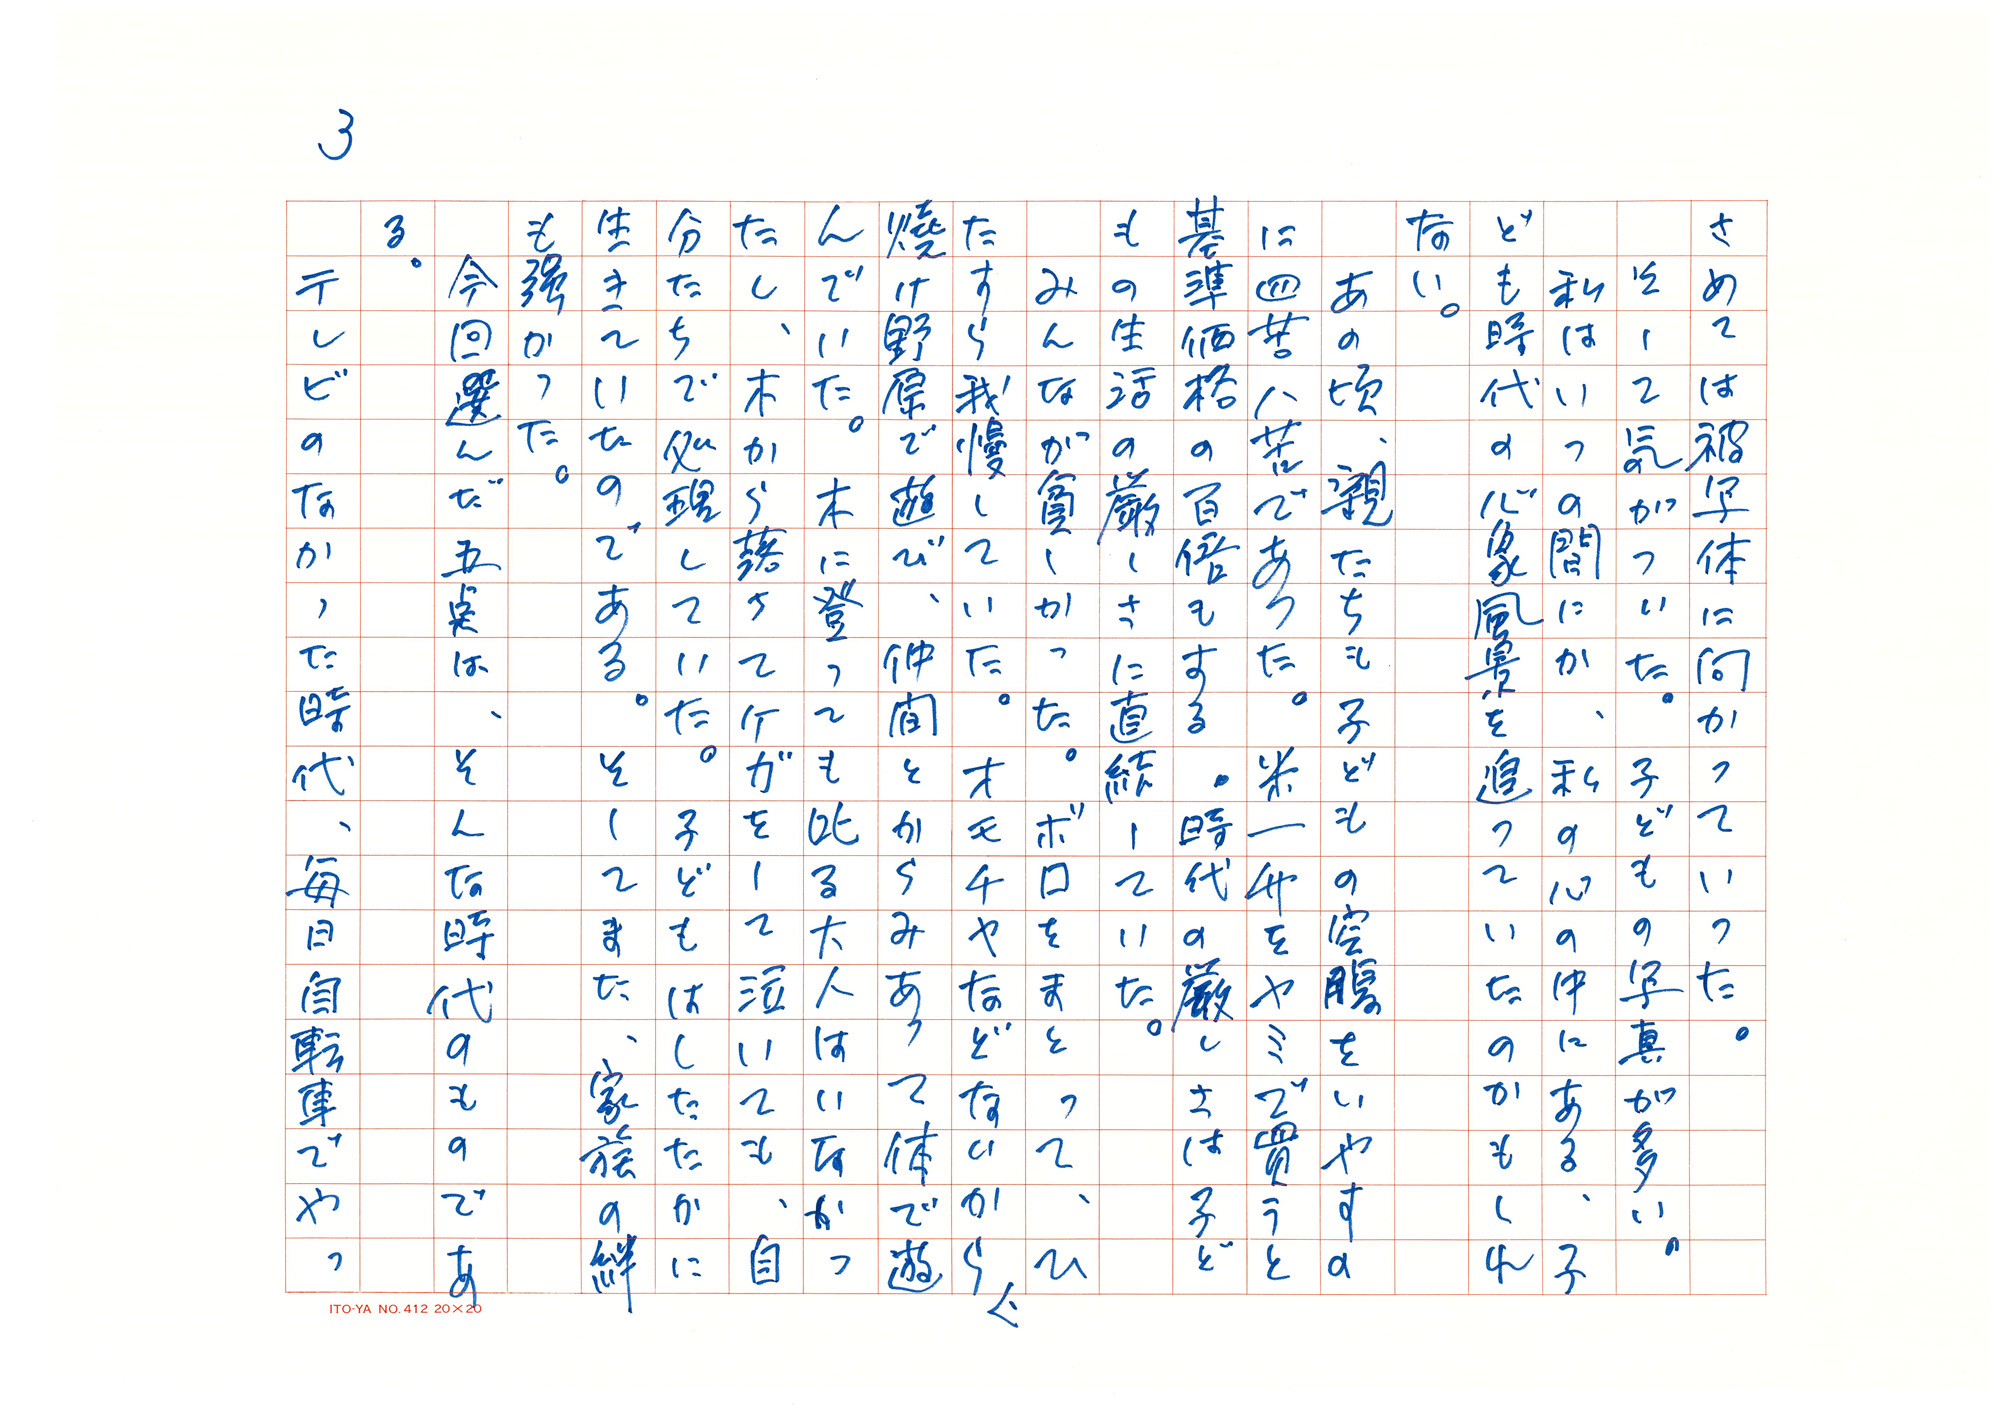 3
さめては被写体に向かっていった。
そして気がついた。子どもの写真が多い。
私はいつの間にか、私の心の中にある、子
ども時代の心象風景を追っていたのかもしれ
ない。
あの頃、親たちも子どもの空腹をいやすの
に四苦八苦であった。米一升をヤミで買うと
基準価格の百倍もする。時代の厳しさは子ど
もの生活の厳しさに直結していた。
みんなが貧しかった。ボロをまとって、ひ
たすら我慢していた。オモチャなどないから、
焼け野原で遊び、仲間とからみあって体で遊
んでいた。木に登っても叱る大人はいなかっ
たし、木から落ちてケガをして泣いても、自
分たちで処理していた。子どもはしたたかに
生きていたのである。そしてまた、家族の絆
も強かった。
今回選んだ五点は、そんな時代のものであ
る。
テレビのなかった時代、毎日自転車でやっ
ITO-YA NO.412 20×20